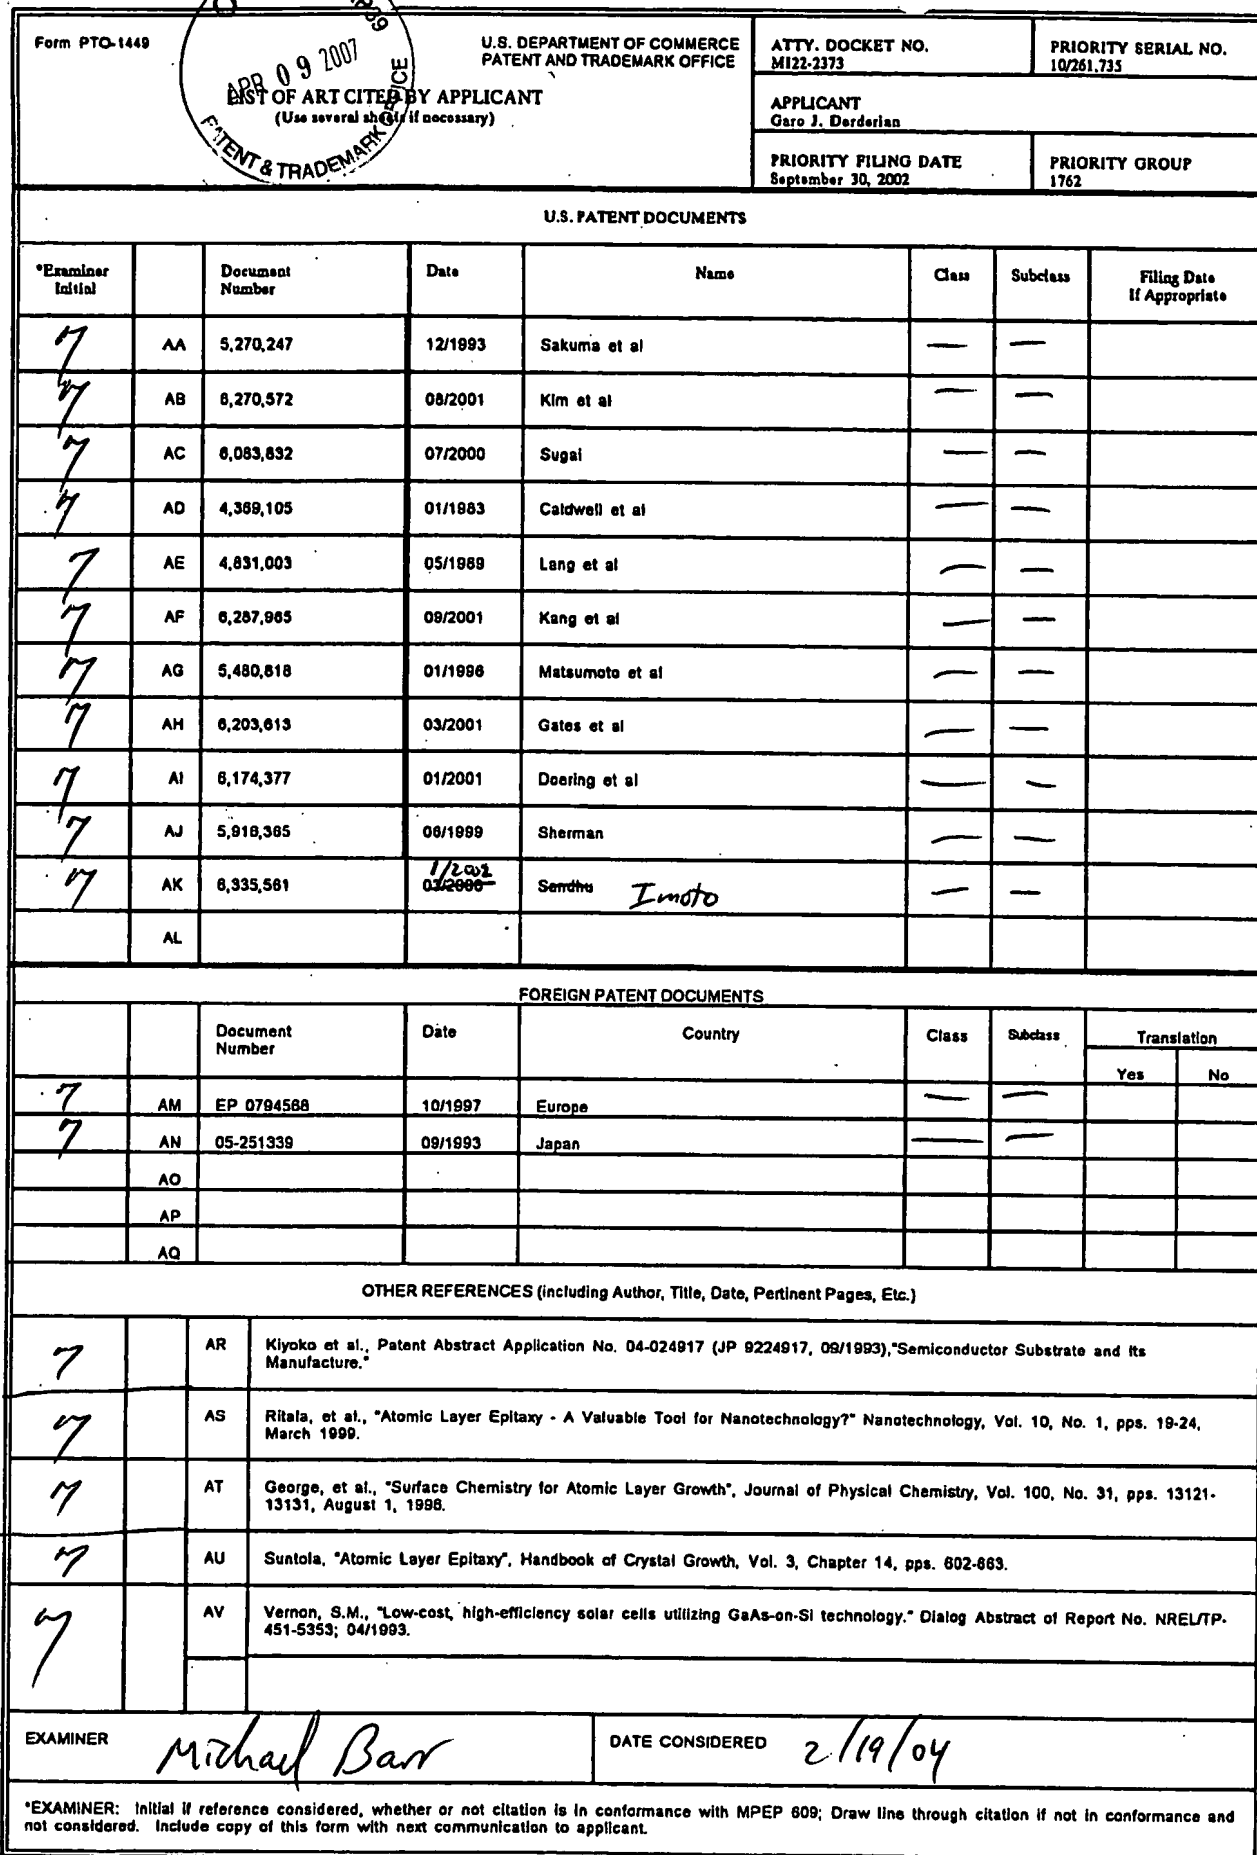 Form PTO-1449
APR 09 2007
PATENT & TRADEMARK OFFICE
U.S. DEPARTMENT OF COMMERCE
PATENT AND TRADEMARK OFFICE
LIST OF ART CITED BY APPLICANT
(Use several sheets if necessary)
ATTY. DOCKET NO.
MI22-2373
PRIORITY SERIAL NO.
10/261,735
APPLICANT
Garo J. Derderian
PRIORITY FILING DATE
September 30, 2002
PRIORITY GROUP
1762
U.S. PATENT DOCUMENTS
*Examiner Initial Document Number Date Name Class Subclass Filing Date If Appropriate
AA 5,270,247 12/1993 Sakuma et al — —
AB 6,270,572 08/2001 Kim et al — —
AC 6,083,832 07/2000 Sugai — —
AD 4,369,105 01/1983 Caldwell et al — —
AE 4,831,003 05/1989 Lang et al — —
AF 6,287,965 09/2001 Kang et al — —
AG 5,480,818 01/1996 Matsumoto et al — —
AH 6,203,613 03/2001 Gates et al — —
AI 6,174,377 01/2001 Doering et al — —
AJ 5,916,365 06/1999 Sherman — —
AK 6,335,561 1/2002 03/2000 Sandhu Imoto — —
AL
FOREIGN PATENT DOCUMENTS
Document Number Date Country Class Subclass Translation
Yes No
AM EP 0794568 10/1997 Europe — —
AN 05-251339 09/1993 Japan — —
AO
AP
AQ
OTHER REFERENCES (including Author, Title, Date, Pertinent Pages, Etc.)
AR Kiyoko et al., Patent Abstract Application No. 04-024917 (JP 9224917, 09/1993),"Semiconductor Substrate and Its
Manufacture."
AS Ritala, et al., "Atomic Layer Epitaxy - A Valuable Tool for Nanotechnology?" Nanotechnology, Vol. 10, No. 1, pps. 19-24,
March 1999.
AT George, et al., "Surface Chemistry for Atomic Layer Growth", Journal of Physical Chemistry, Vol. 100, No. 31, pps. 13121-
13131, August 1, 1996.
AU Suntola, "Atomic Layer Epitaxy", Handbook of Crystal Growth, Vol. 3, Chapter 14, pps. 602-663.
AV Vernon, S.M., "Low-cost, high-efficiency solar cells utilizing GaAs-on-Si technology." Dialog Abstract of Report No. NREL/TP-
451-5353; 04/1993.
EXAMINER Michael Barr DATE CONSIDERED 2/19/04
*EXAMINER: Initial if reference considered, whether or not citation is in conformance with MPEP 609; Draw line through citation if not in conformance and
not considered. Include copy of this form with next communication to applicant.